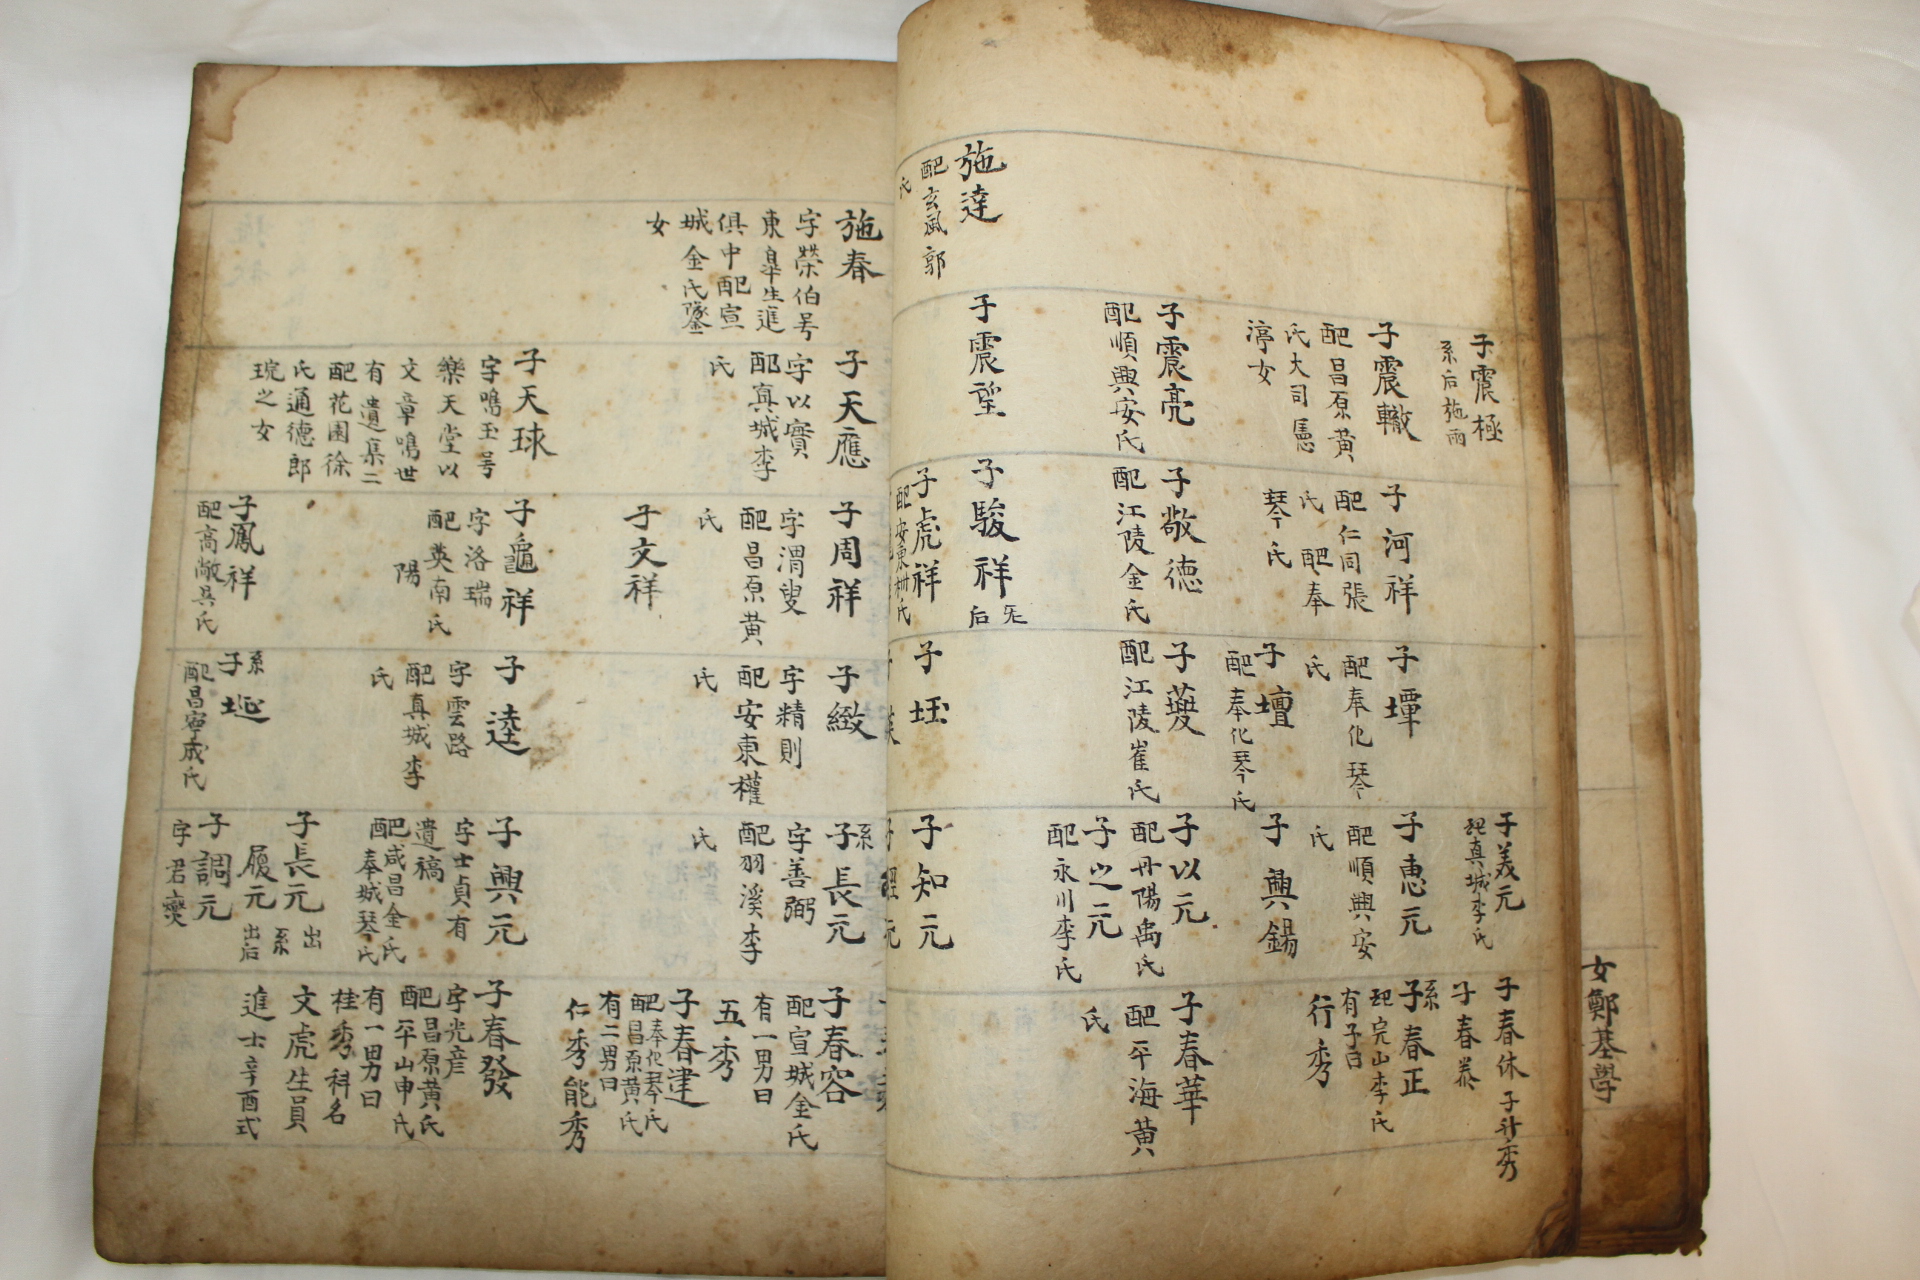 女鄭基學
施達
配玄風郭
氏
子震極
系后施雨
子震轍
配昌原黃
氏大司憲
渟女
子震亮
配順興安氏
子震望
子河祥
配仁同張
氏 配奉
琴氏
子敬德
配江陵金氏
子駿祥
后
子虎祥
子墰
配奉化琴
氏
子壇
配奉化琴氏
配江陵崔氏
子
子美元
配真城李氏
子惠元
配順興安
氏
子興錫
子以元
配丹陽禹氏
子之元
配永川李氏
子知元
子春休 子斗秀
子春
系
子春正
配完山李氏
有子曰
行秀
子春華
配平海黃
氏
施春
字榮伯号
東皐生進
俱中配宣
城金氏
女
子天應
字以實
配真城李
氏
子天球
字鳴玉号
樂天堂以
文章鳴世
有遺集二
配花園徐
氏通德郎
琬之女
子周祥
字渭叟
配昌原黃
氏
子文祥
子龜祥
字洛瑞
配英南氏
陽
子鳳祥
配高敞吳氏
子緻
字精則
配安東權
氏
子逵
字雲路
配真城李
氏
系
子
配昌寧成氏
系
子長元
字善弼
配羽溪李
氏
子興元
字士貞有
遺稿
配咸昌金氏
奉城琴氏
子長元
出
系
履元
出后
子調元
字君燮
子春容
配宣城金氏
有一男曰
五秀
子春建
配奉化琴氏
昌原黃氏
有二男曰
仁秀能秀
子春發
字光彦
配昌原黃氏
平山申氏
有一男曰
桂秀科名
文虎生員
進士辛酉式